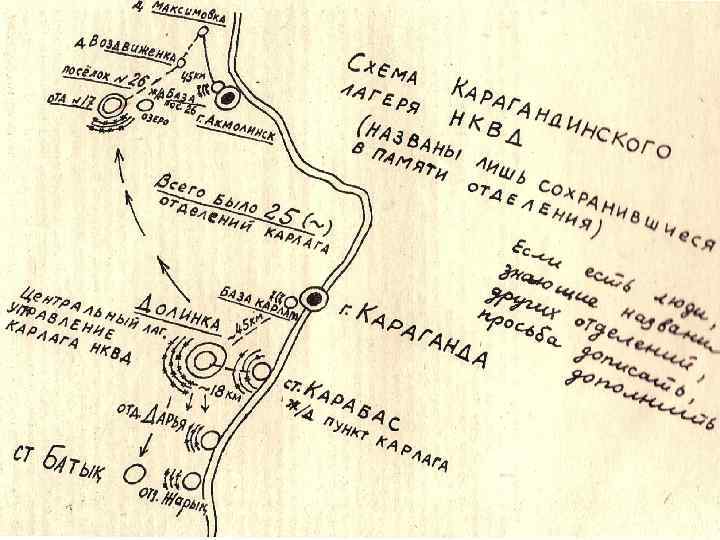 д. Максимовка
д. Воздвиженка
посёлок №26
45км
ж/д база
пос. 26
отд №17
озеро
г. Акмолинск
Схема Карагандинского
лагеря НКВД
(названы лишь сохранившиеся
в памяти отделения)
Всего было 25 (~)
отделений Карлага
Если есть люди,
знающие названия
других отделений,
просьба дописать,
дополнить
База Карлага
г. Караганда
Долинка
45км
Центральный лаг.
управление
Карлага НКВД
~18км
ст. Карабас
ж/д пункт Карлага
отд. Дарья
ст Батық
отд. Жарық